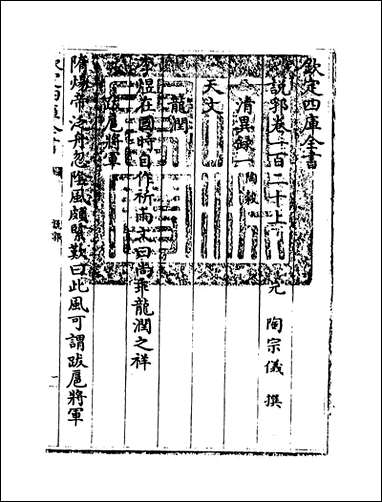 欽定四庫全書
說郛卷一百二十上
元 陶宗儀 撰
清異録 陶穀
天文
龍潤
李煜在國時自作祈雨文曰尚乖龍潤之祥
跋扈將軍
隋煬帝泛舟忽陰風頗緊歎曰此風可謂跋扈將軍